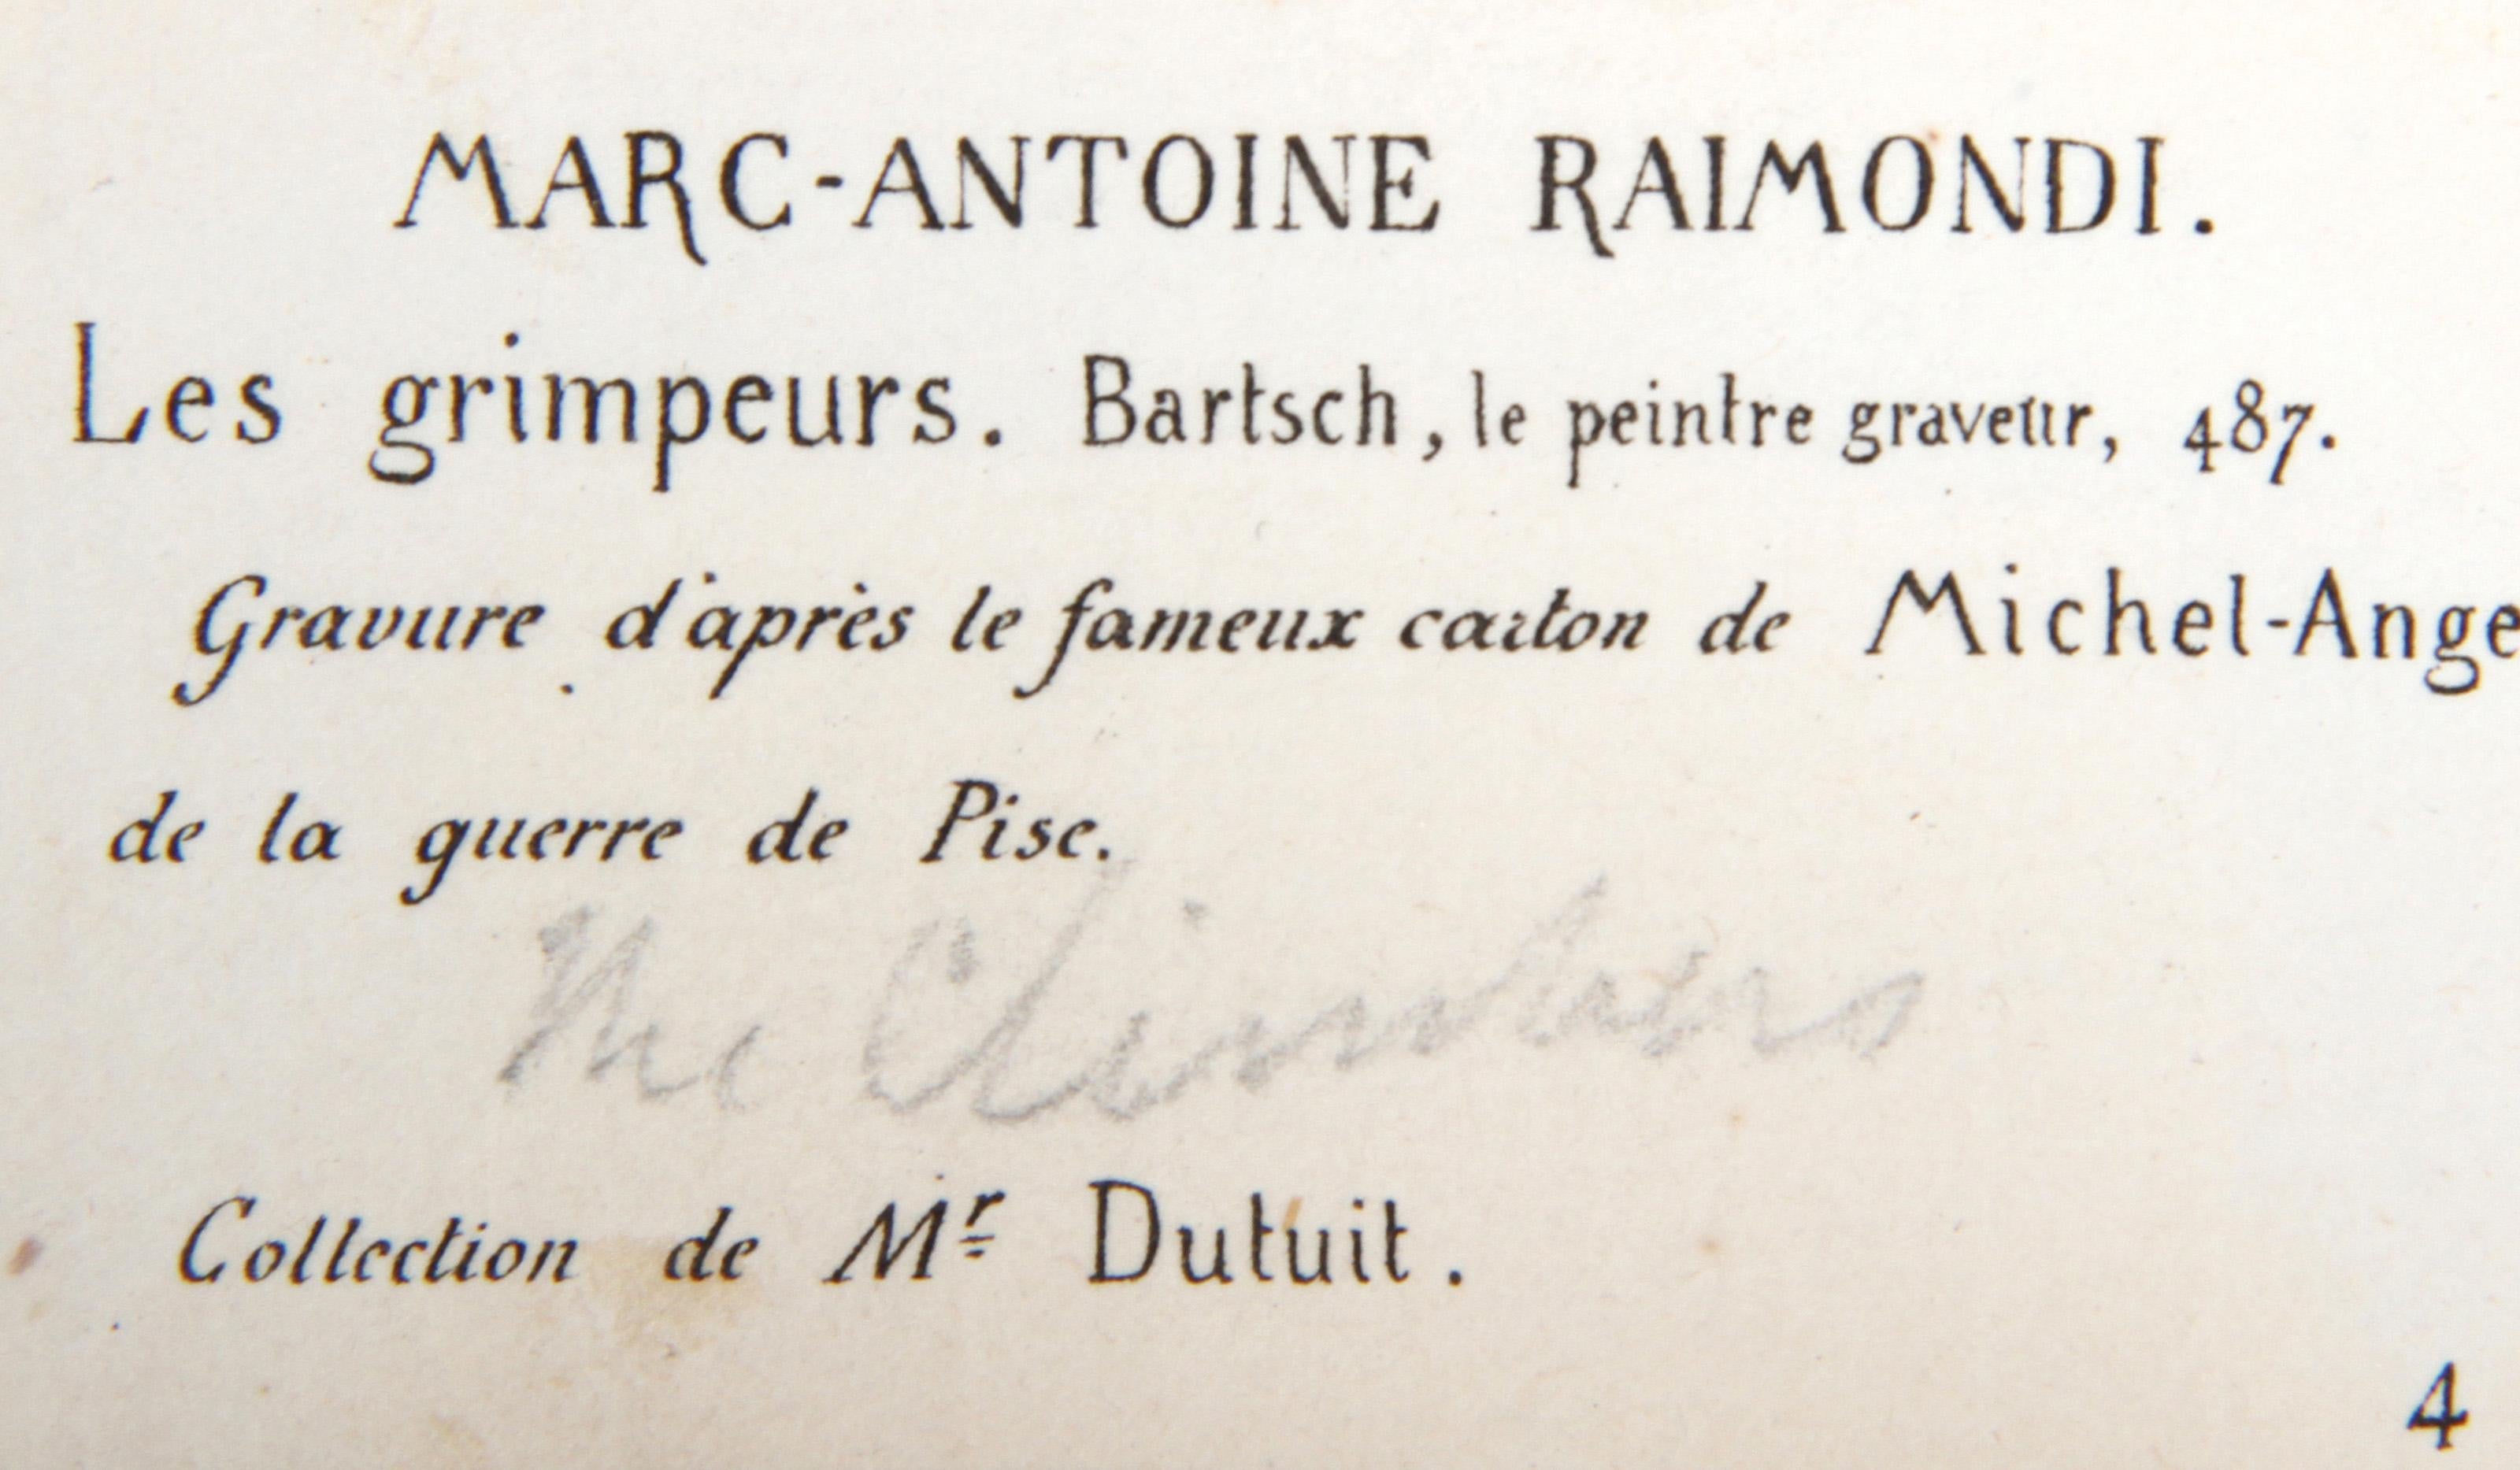 MARC-ANTOINE RAIMONDI.
Les grimpeurs. Bartsch, le peintre graveur, 487.
Gravure d'après le fameux carton de Michel-Ange
de la guerre de Pise.
The Climbers
Collection de Mr Dutuit.
4